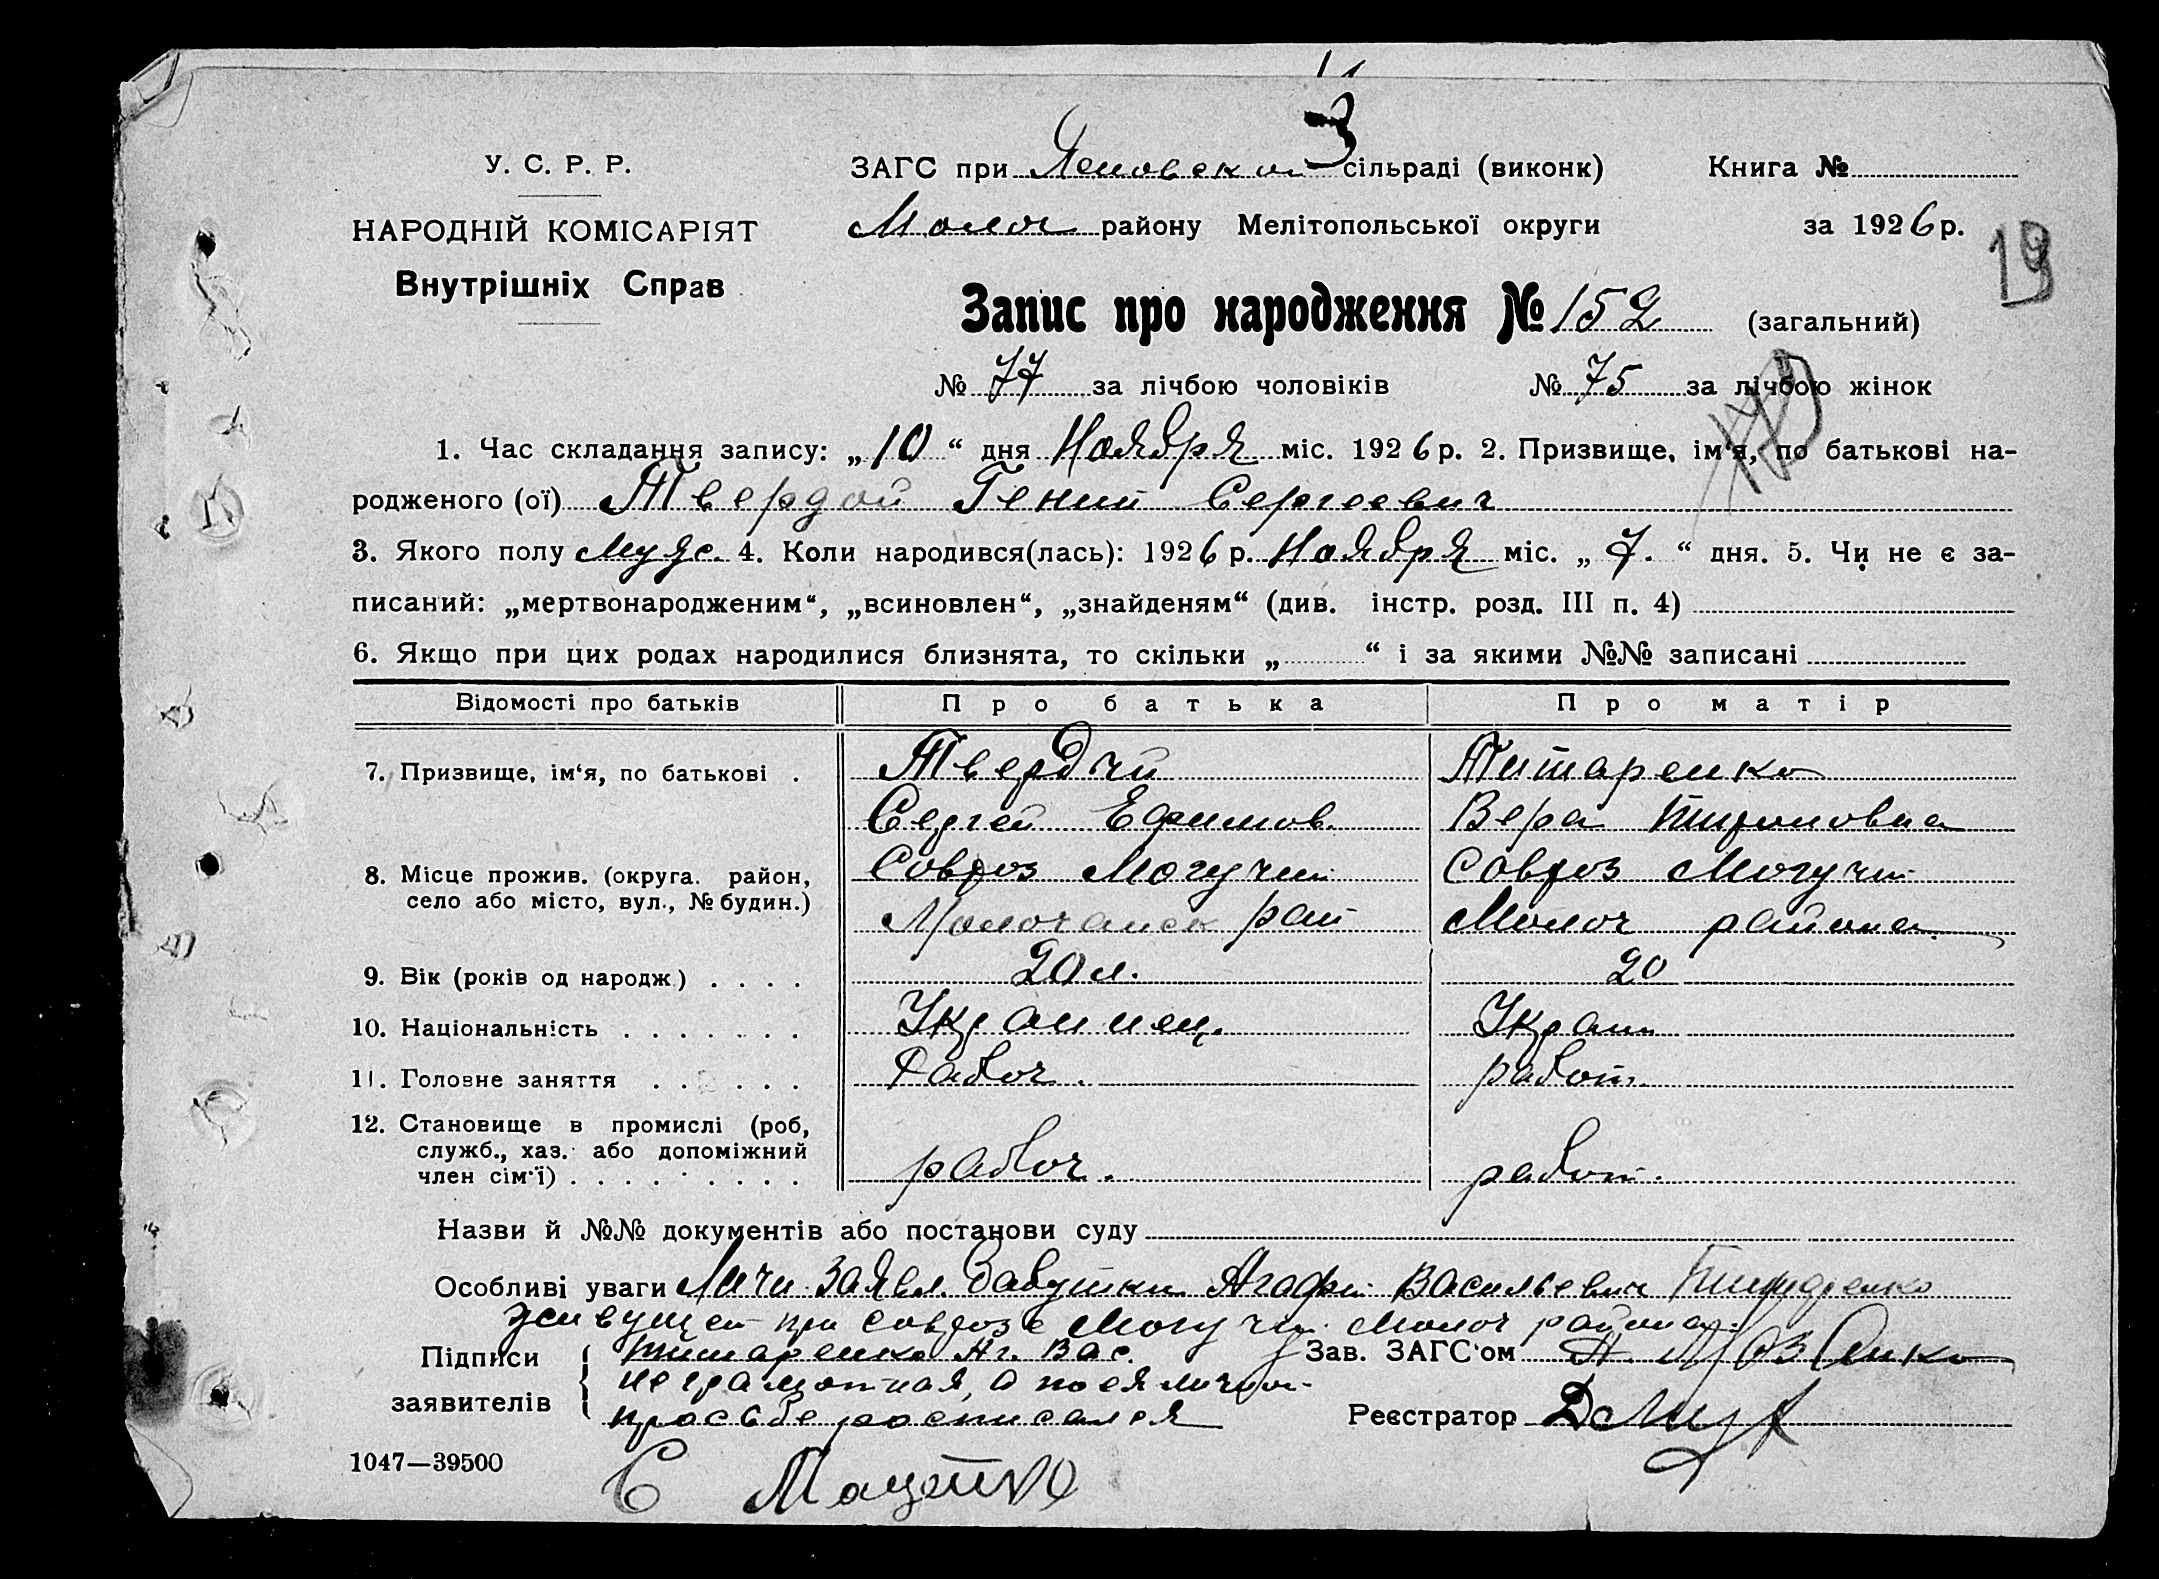 У. С. Р. Р.
НАРОДНІЙ КОМІСАРІЯТ
Внутрішніх Справ
3
ЗАГС при сільраді (виконк) Книга №
Молоч району Мелітопольської округи за 1926 р.
19
Запис про народження № 152 (загальний)
№ 77 за лічбою чоловіків № 75 за лічбою жінок
1. Час складання запису: „10“ дня Ноября міс. 1926 р. 2. Призвище, ім'я, по батькові на-
родженого (ої) Твердой Гений Сергеевич
3. Якого полу Муж. 4. Коли народився(лась): 1926 р. Ноября міс. „7.“ дня. 5. Чи не є за-
писаний: „мертвонародженим“, „всиновлен“, „знайденям“ (див. інстр. розд. III п. 4)
6. Якщо при цих родах народилися близнята, то скільки „ “ і за якими №№ записані
Відомості про батьків Про батька Про матір
7. Призвище, ім'я, по батькові . Твердой Титаренко
Сергей Ефимов. Вера
8. Місце прожив. (округа. район, село або місто, вул., № будин.) Совхоз Могучий Совхоз Могучий
Молочанск рай Молоч района
9. Вік (років од народж.) . . . . 20 л. 20
10. Національність . . . . . . . Украинец. Украин
11. Головне заняття . . . . . . Рабоч. работ.
12. Становище в промислі (роб, служб., хаз. або допоміжний член сім'ї) . . . . . . . . . рабоч. работ.
Назви й №№ документів або постанови суду
Особливі уваги Личн. заявл. бабушки Агафи Васильевич Титаренко
живущей при совхозе Могучий Молоч района.
Підписи заявителів Титаренко Аг. Вас.
неграмотная, а по ея личной
просьбе росписался
Зав. ЗАГС'ом
Реєстратор
1047—39500
С